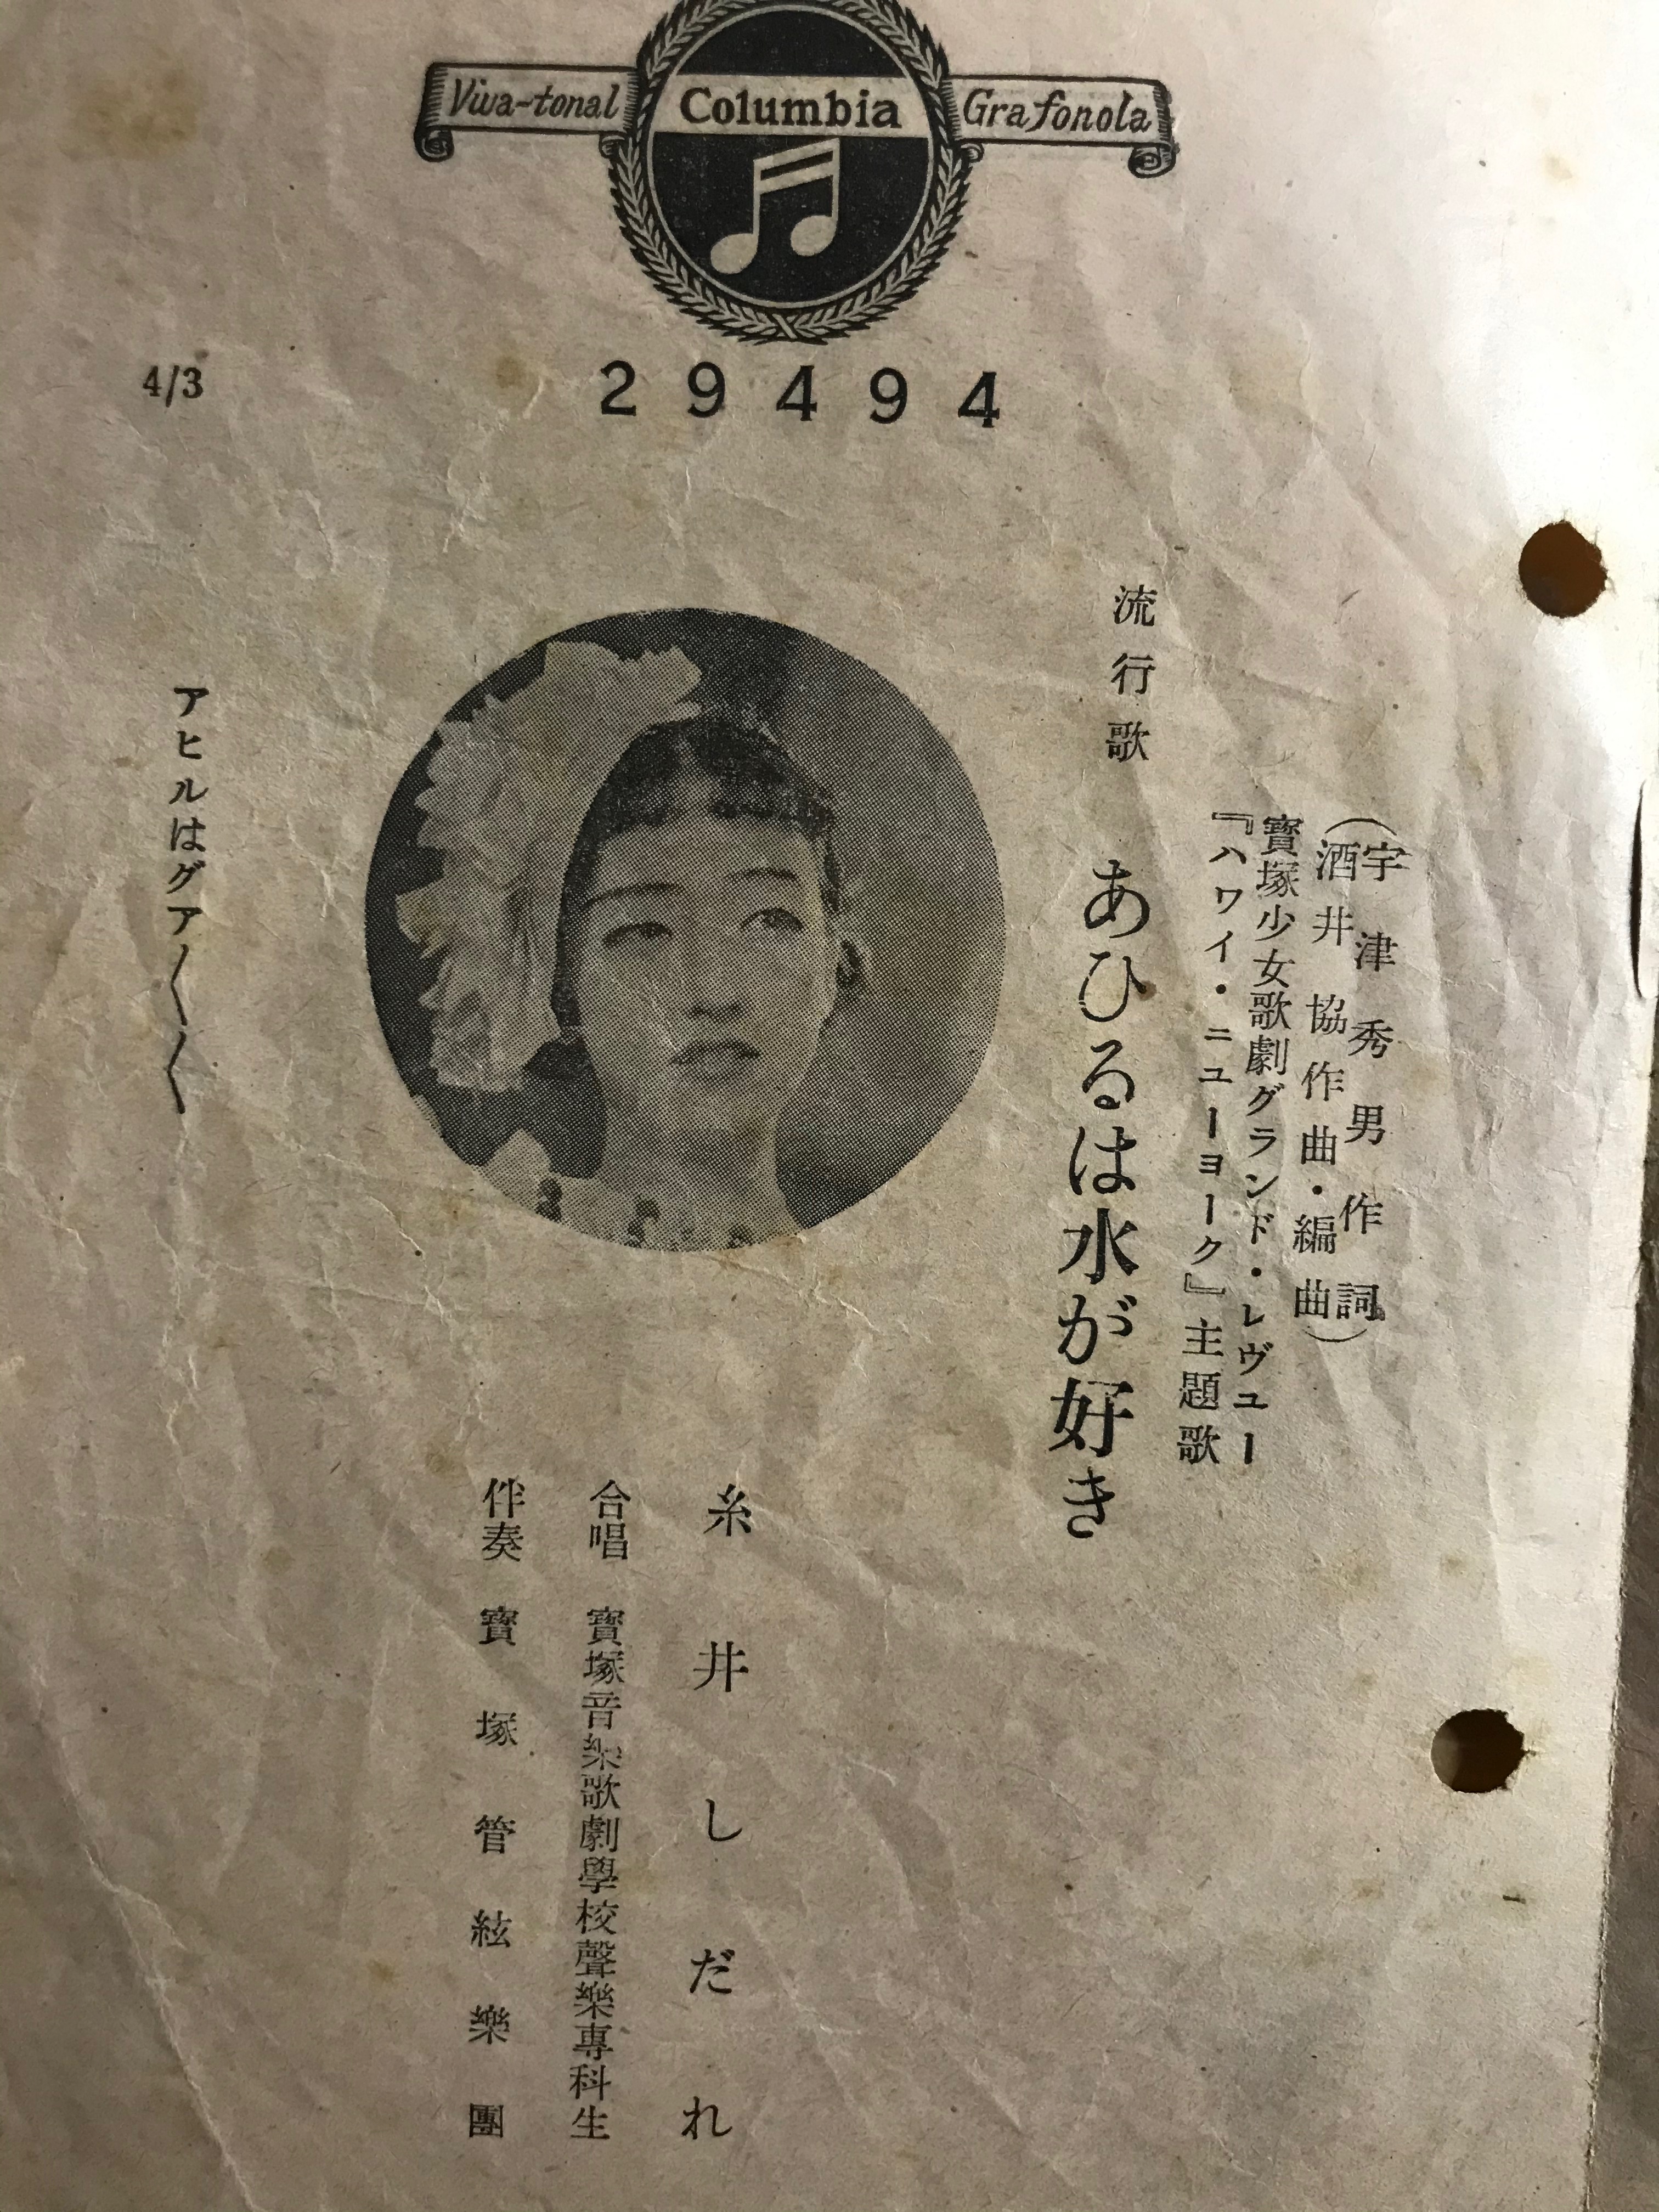 Viva-tonal Columbia Grafonola
29494
4/3
(宇津秀男作詞
酒井協作曲・編曲)
寶塚少女歌劇グランド・レヴユー
『ハワイ・ニューヨーク』主題歌
流行歌 あひるは水が好き
糸井しだれ
合唱 寶塚音樂歌劇學校聲樂專科生
伴奏 寶塚管絃樂團
アヒルはグアグアグア